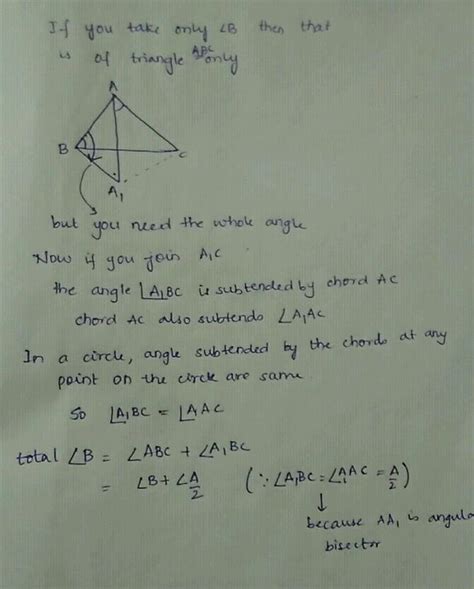 If you take only ∠B then that
is of triangle ABC only
A
B
C
A₁
but you need the whole angle
Now if you join A₁C
the angle ∠A₁BC is subtended by chord AC
chord AC also subtends ∠A₁AC
In a circle, angle subtended by the chords at any
point on the circle are same.
So ∠A₁BC = ∠A₁AC
total ∠B = ∠ABC + ∠A₁BC
= ∠B + ∠A/2 (∵ ∠A₁BC = ∠A₁AC = A/2)
↓
because AA₁ is angular
bisector